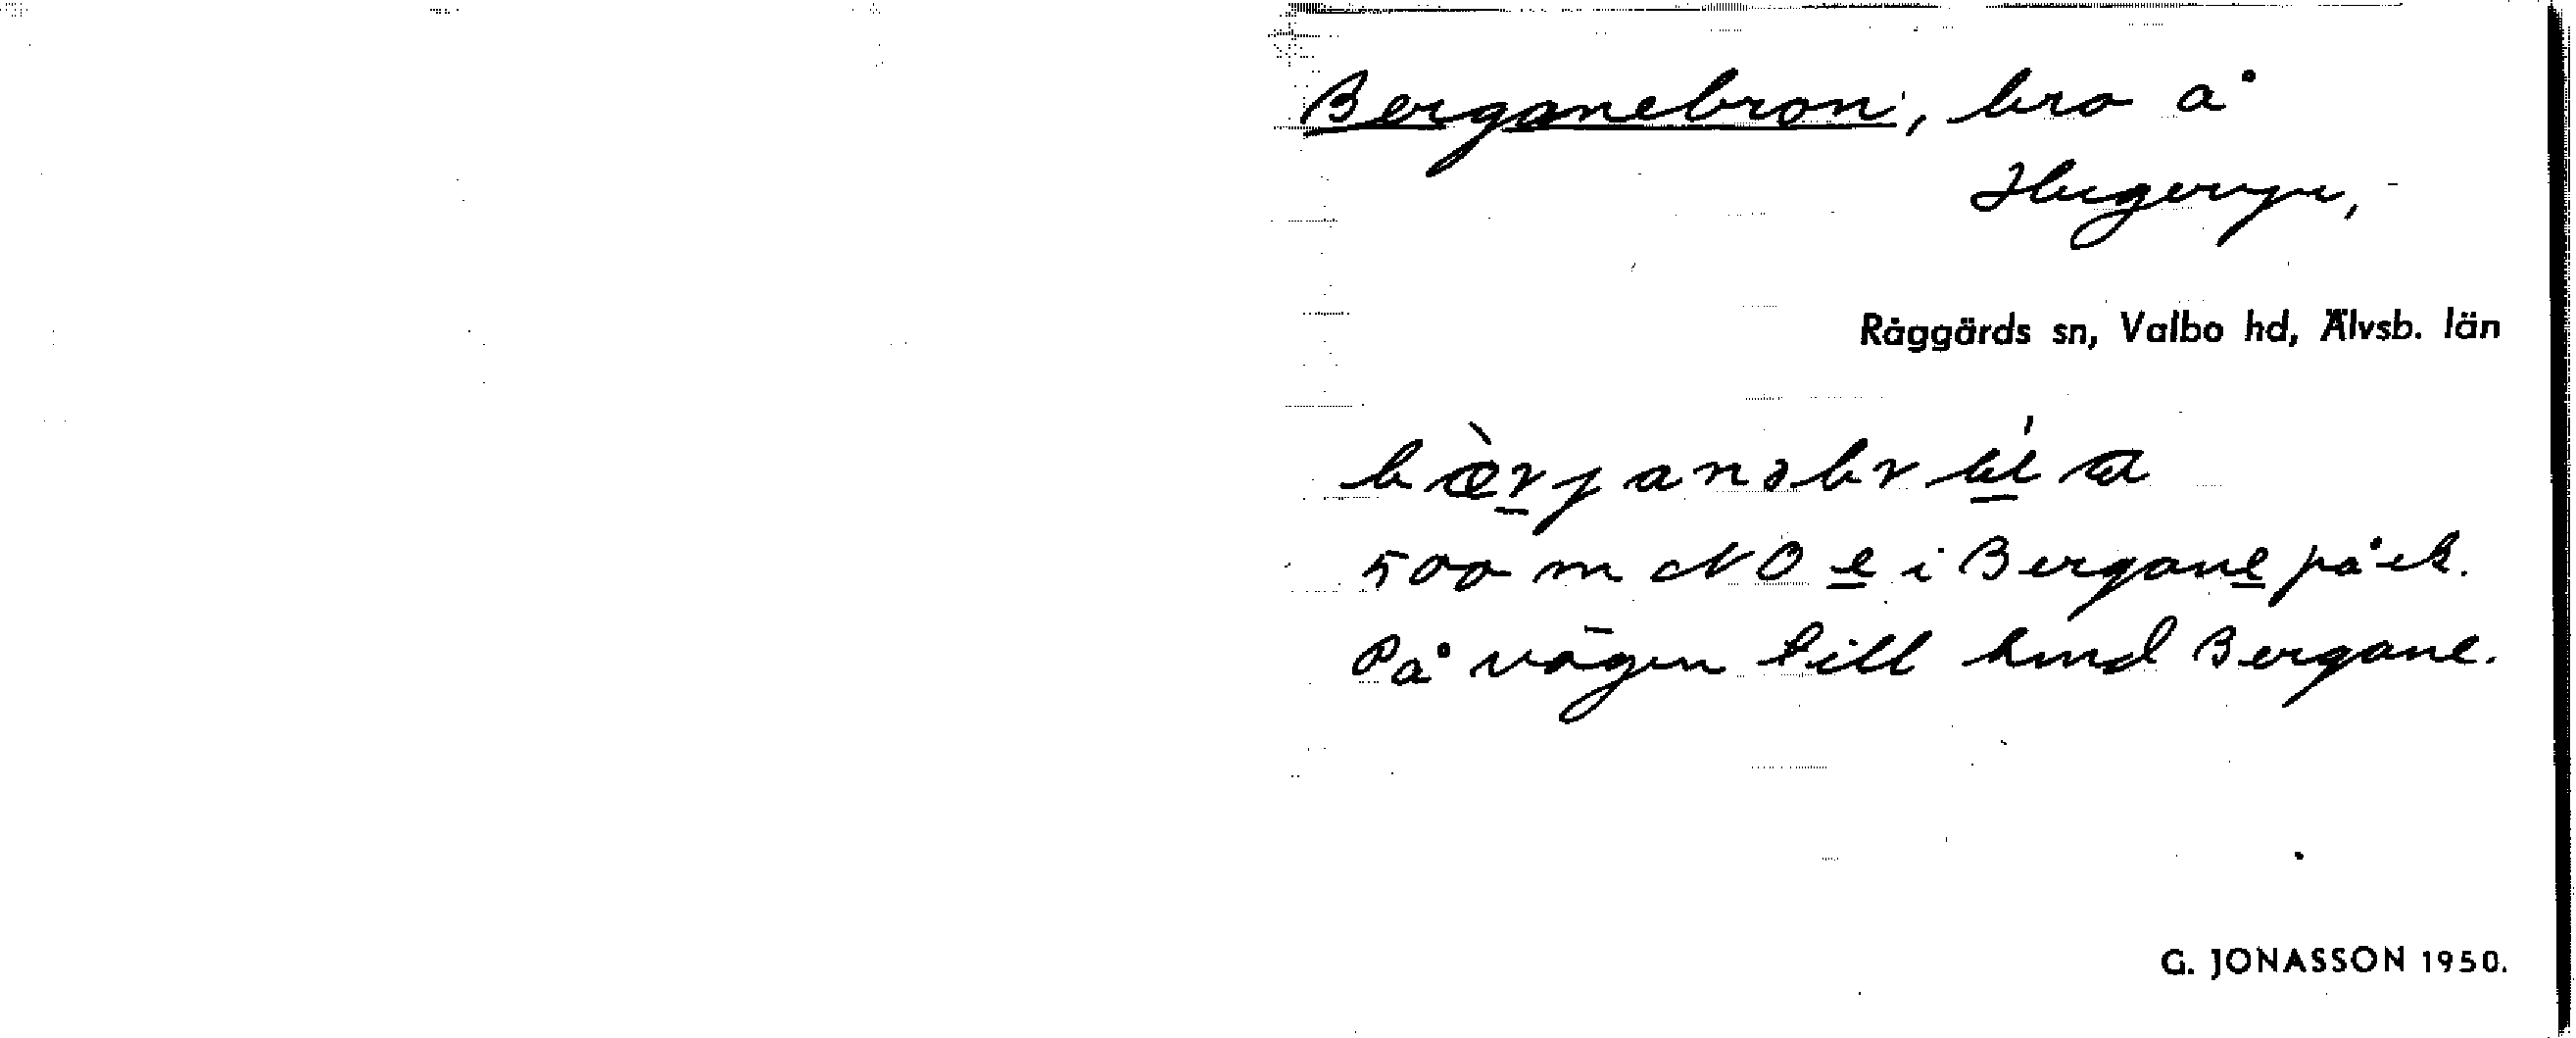 Berganebron, bro å
Hugeryr,
Råggärds sn, Valbo hd, Älvsb. län
500 m NO e i Bergane på ek.
På vägen till hmd Bergane.
G. JONASSON 1950.